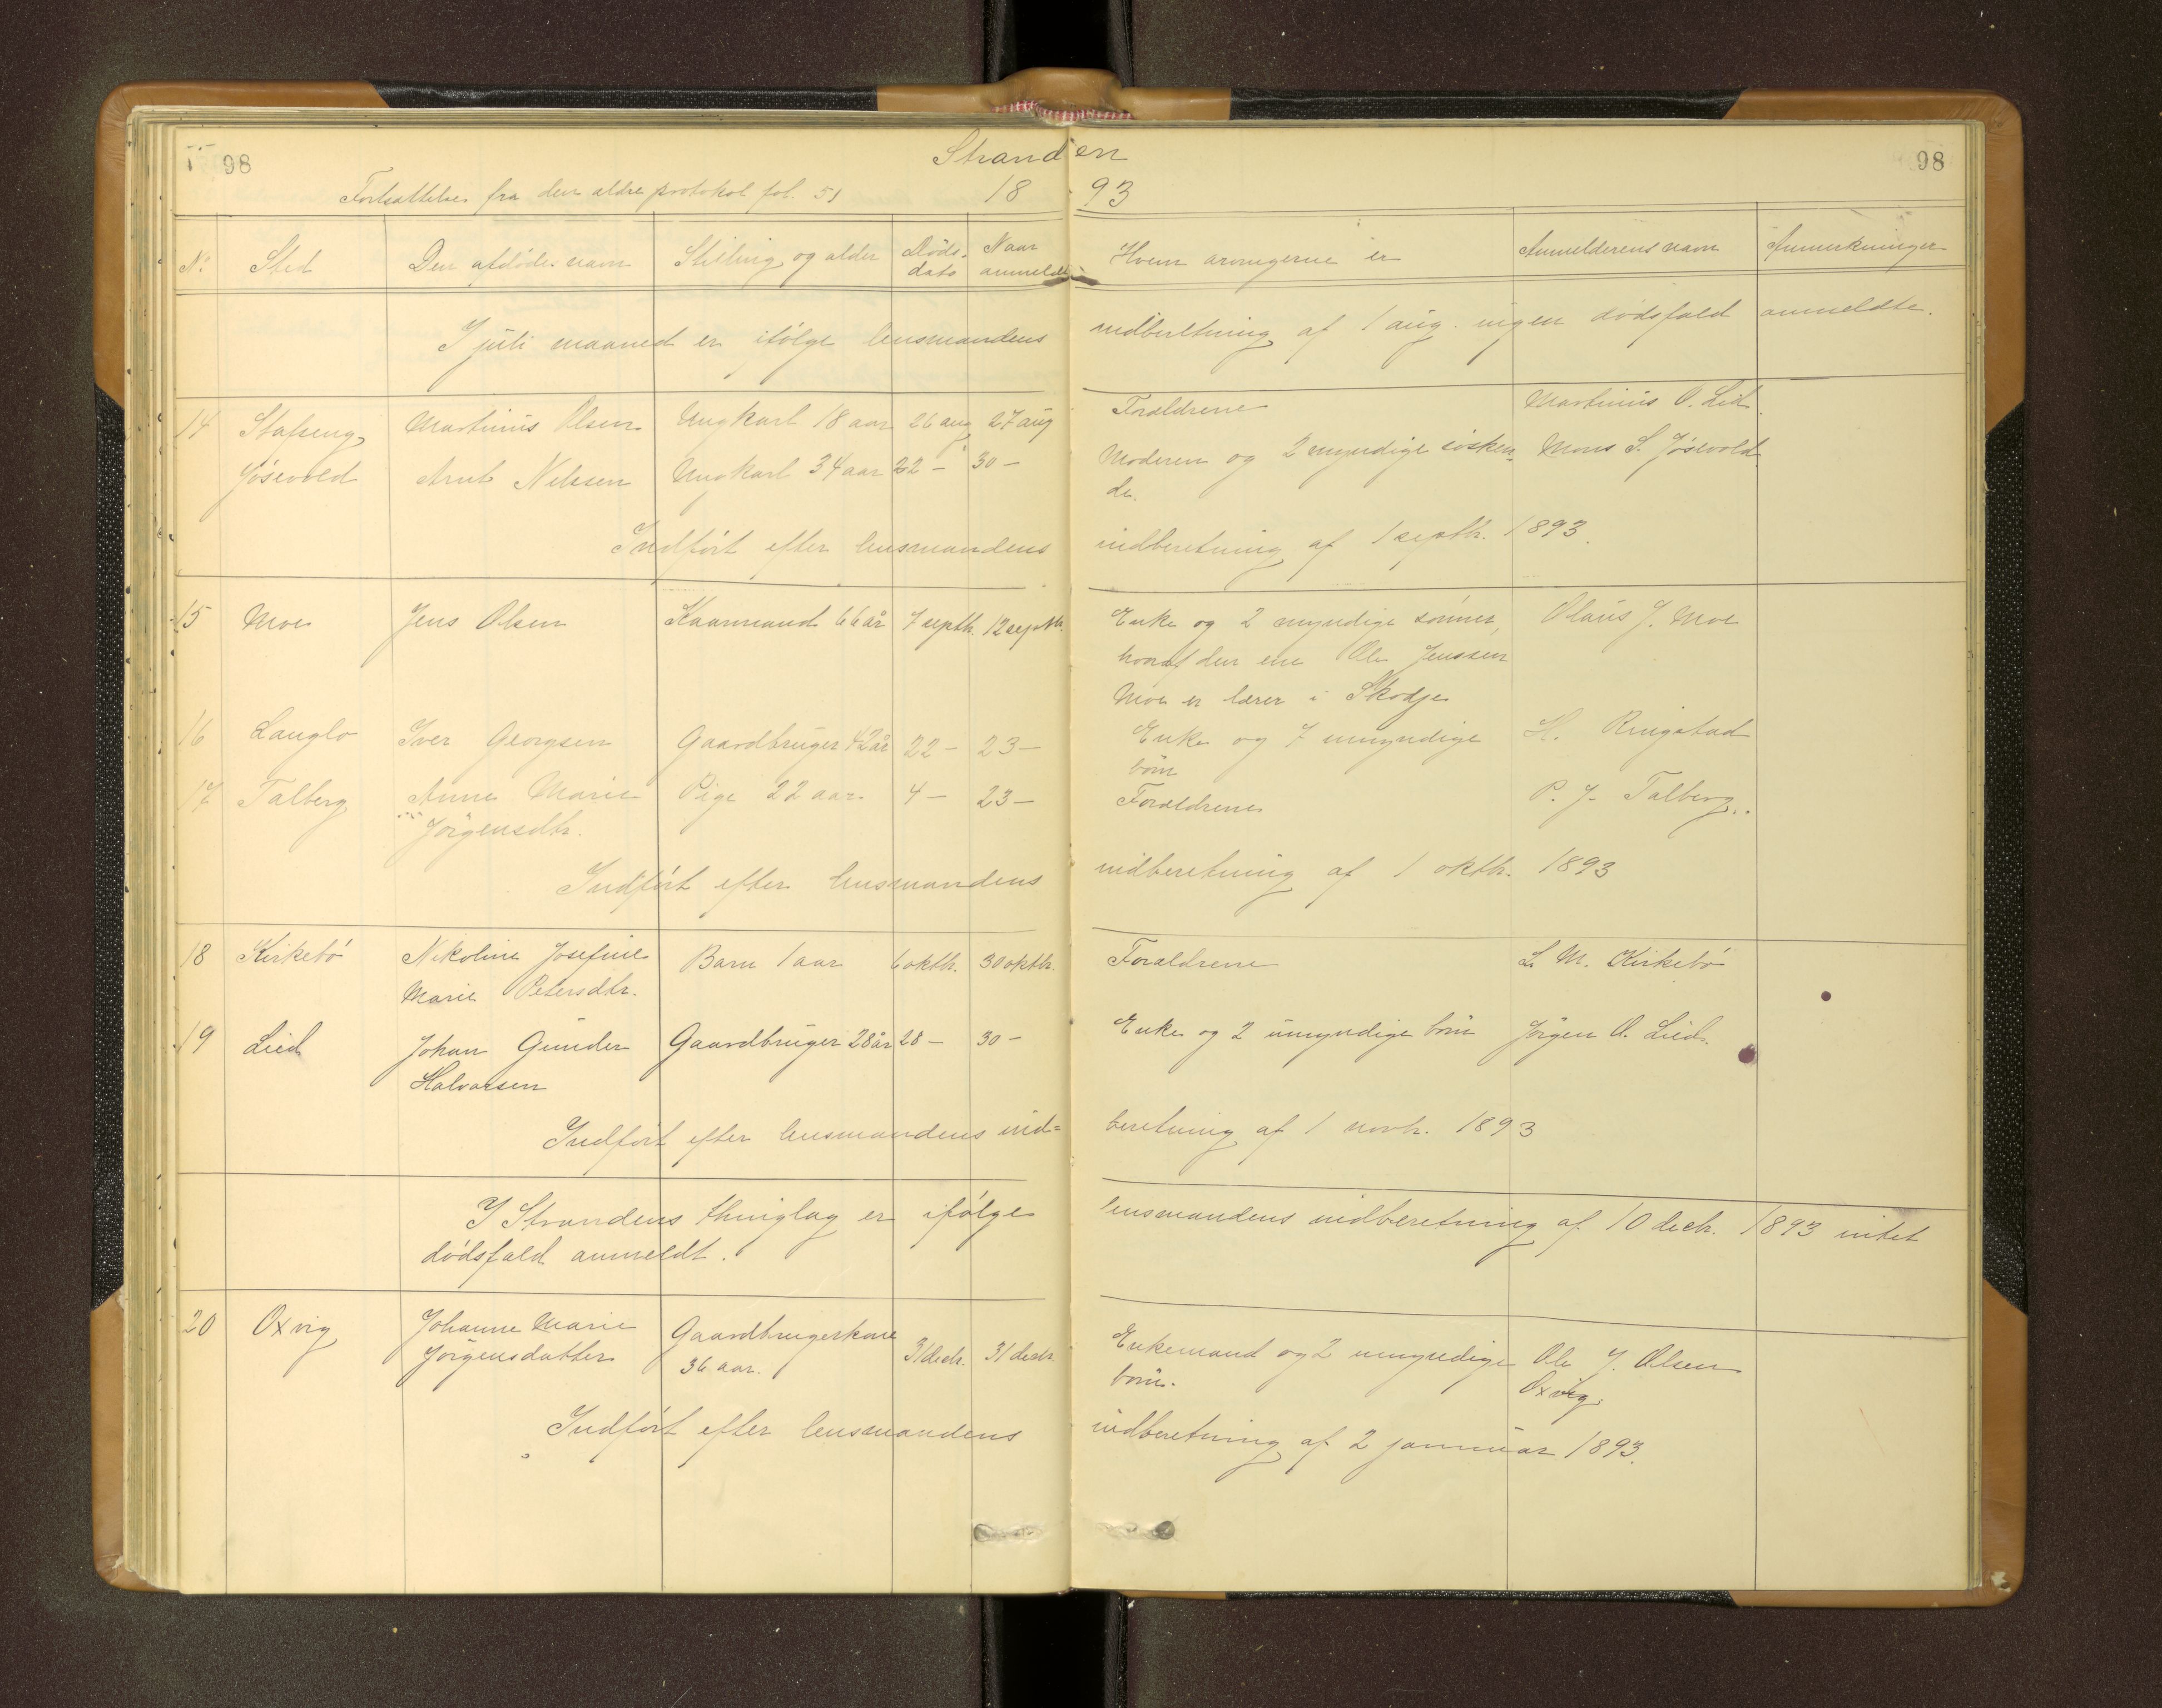 98 Stranden 98
Fortsættelse fra den ældre protokol fol. 51 18 93
No Sted Den afdødes navn Stilling og alder Døds- Naar Hvem arvingerne er Anmelderens navn Anmerkninger
dato anmeldt
I juli maaned er ifølge lensmandens indberetning af 1 aug. ingen dødsfald anmeldte.
14 Stafseng Martinus Olsen Ungkarl 18 aar 26 aug 27 aug Forældrene Martinus O. Lid
Jøsevold Arnt Nilssen Ungkarl 34 aar 22 - 30 - Moderen og 2 myndige søsken- Mons S. Jøsevold
de.
Indført efter lensmandens indberetning af 1 septbr. 1893.
15 Moe Jens Olsen Kaarmand 66 år 7 septb. 12 septbr. Enke og 2 myndige sønner, Olaus J. Moe
hvoraf den ene Ole Jenssen
Moe er lærer i Skodje
16 Langlo Iver Georgsen Gaardbruger 42 år 22 - 23 - Enke og 7 umyndige H. Ringstad
børn
17 Talberg Anne Marie Pige 22 aar. 4 - 23 - Forældrene P. J. Talberg.
Jörgensdtr.
Indført efter lensmandens indberetning af 1 oktbr. 1893
18 Kirkebø Nikoline Josefine Barn 1 aar 6 oktb. 30 oktbr. Forældrene L. M. Kirkebø
Marie Petersdtr.
19 Lied Johan Gunder Gaardbruger 28 år 28 - 30 - Enke og 2 umyndige børn Jörgen O. Lied.
Halvorsen
Indført efter lensmandens ind= beretning af 1 novb. 1893
I Strandens thinglag er ifølge lensmandens indberetning af 10 decb. 1893 intet
dødsfald anmeldt.
20 Oxvig Johanne Marie Gaardbrugerkone 31 decb. 31 decb. Enkemand og 2 umyndige Ole J. Olsen
Jörgensdatter 36 aar. børn. Oxvig.
Indført efter lensmandens indberetning af 2 januar 1893.